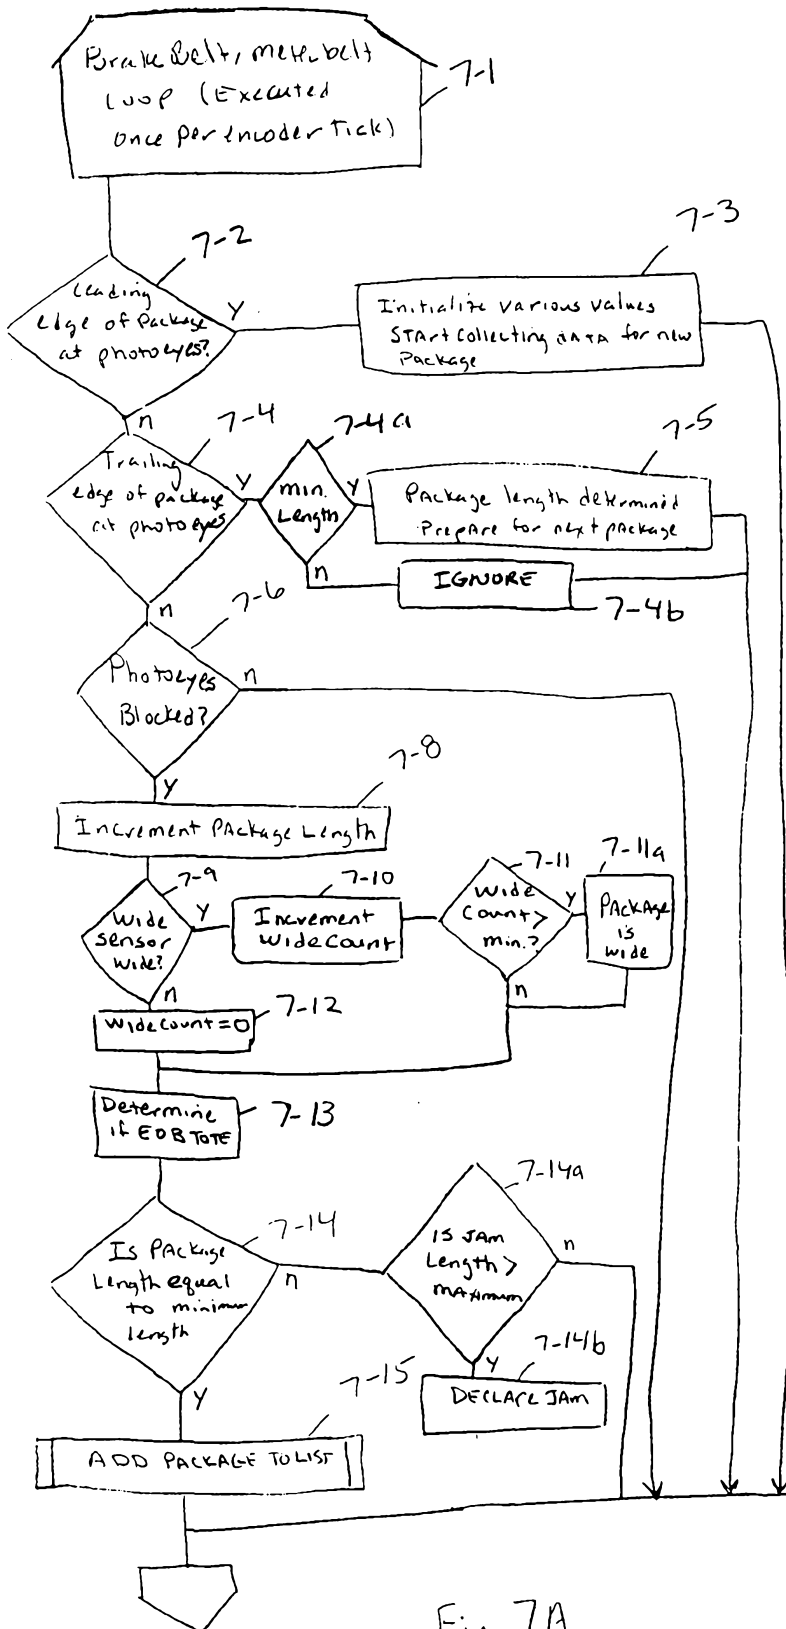 Brake Belt, meter belt
Loop (Executed
once per encoder Tick)
7-1
7-2
Leading
edge of package
at photoeyes?
Y
n
7-3
Initialize various values
START collecting DATA for new
Package
7-4
Trailing
edge of package
at photoeyes
Y
n
7-4a
min.
Length
Y
n
7-5
PAckage length determined
PrepAre for next pAckage
IGNORE
7-4b
7-6
Photoeyes
Blocked?
n
Y
7-8
Increment PAckage Length
7-9
Wide
sensor
wide?
Y
n
7-10
Increment
wide Count
7-11
Wide
Count >
min.?
Y
n
7-11a
PACKAGE
is
wide
Wide Count = 0
7-12
Determine
if EOB TOTE
7-13
7-14
Is PAckage
Length equal
to minimum
length
n
Y
7-14a
IS JAM
Length >
mAximum
n
Y
7-14b
DECLARE JAM
7-15
ADD PACKAGE TO LIST
Fig 7A